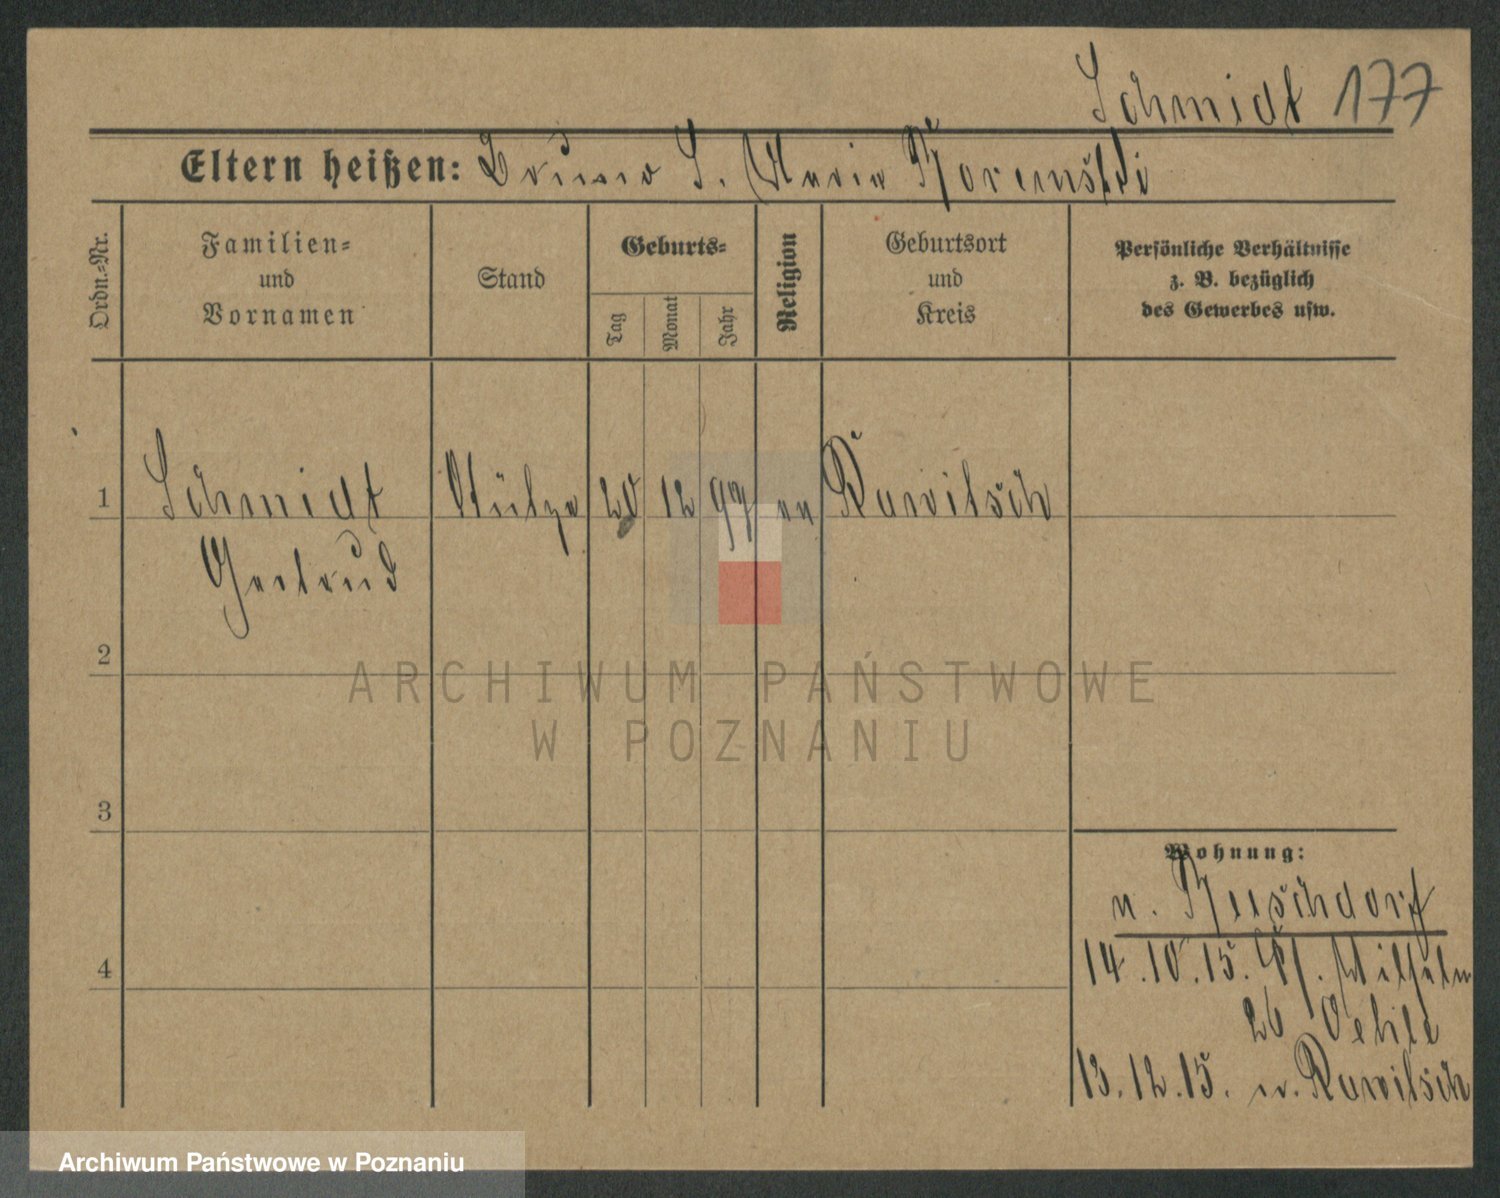 Schmidt 177
Eltern heißen: Bruno S. Maria
Ordn.-Nr.
Familien=
und
Vornamen
Stand
Geburts=
Tag
Monat
Jahr
Religion
Geburtsort
und
Kreis
Persönliche Verhältnisse
z. B. bezüglich
des Gewerbes usw.
1 Schmidt Stütze 20 12 97 ev Rawitsch
Gertrud
2
3
4
Wohnung:
n. Reischdorf
14.10.15. Wilhelm
26
13.12.15. n. Rawitsch
ARCHIWUM PAŃSTWOWE
W POZNANIU
Archiwum Państwowe w Poznaniu